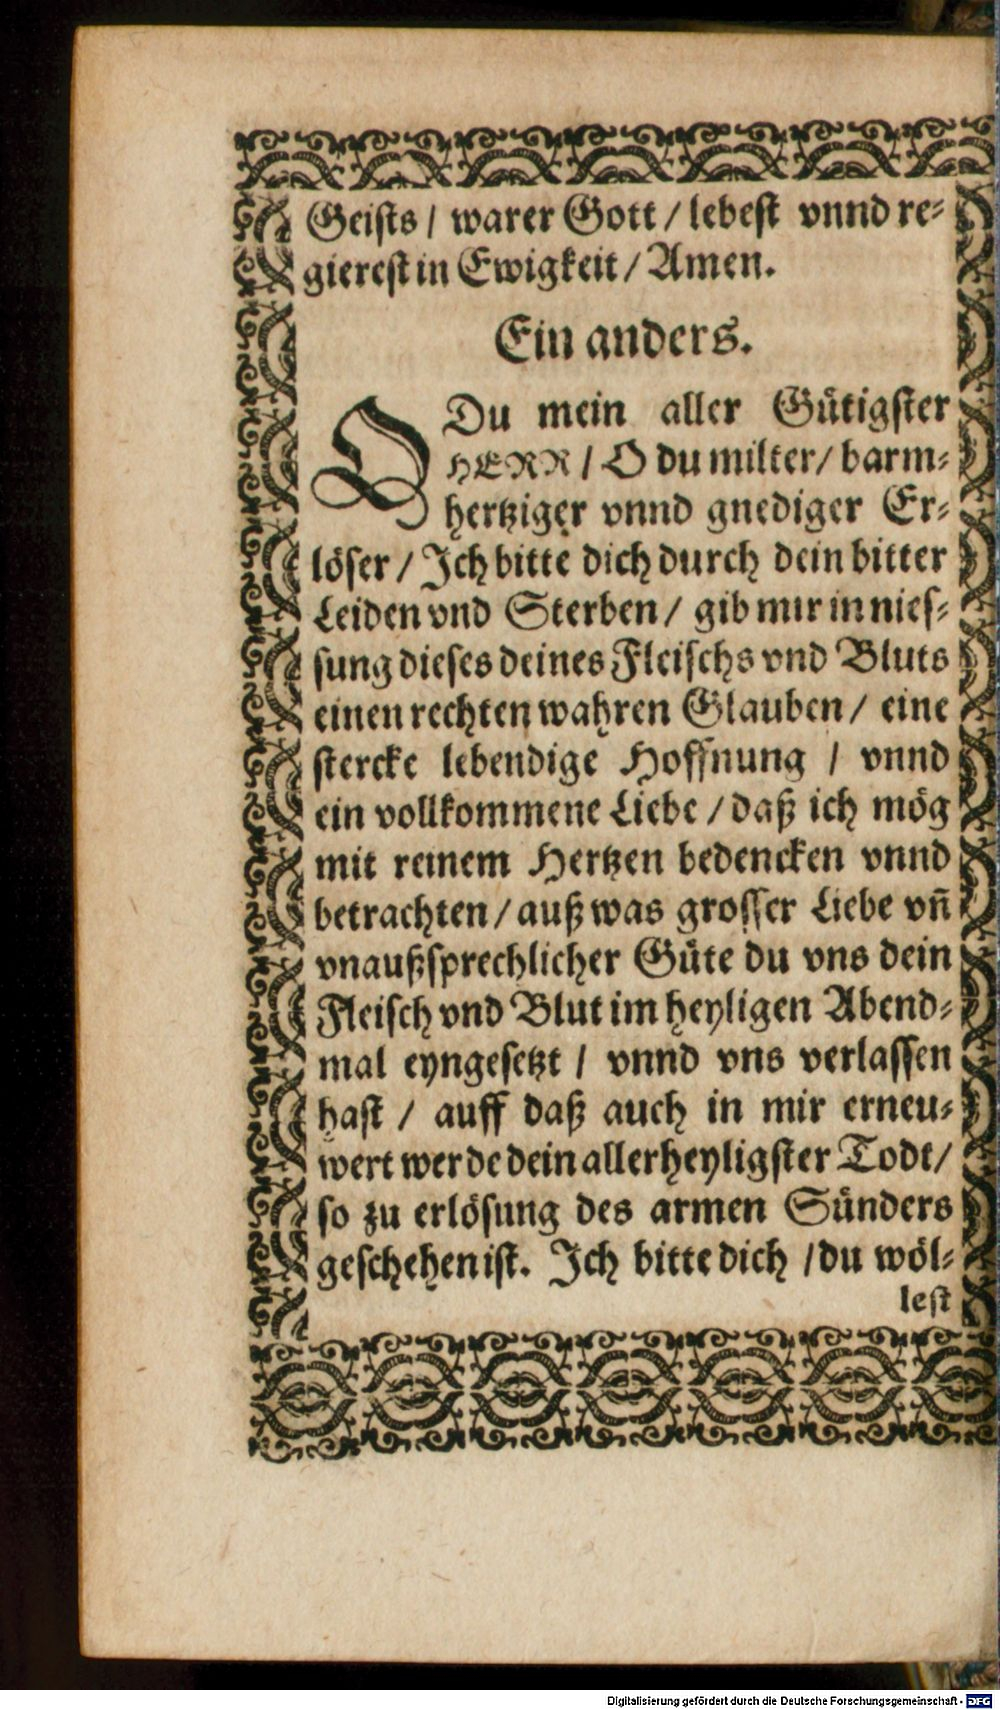 Geists / warer Gott / lebest vnnd re-
gierest in Ewigkeit / Amen.
Ein anders.
O Du mein aller Gütigster
HERR / O du milter / barm-
hertziger vnnd gnediger Er-
löser / Ich bitte dich durch dein bitter
Leiden vnd Sterben / gib mir in nies-
sung dieses deines Fleischs vnd Bluts
einen rechten wahren Glauben / eine
stercke lebendige Hoffnung / vnnd
ein vollkommene Liebe / daß ich mög
mit reinem Hertzen bedencken vnnd
betrachten / auß was grosser Liebe vñ
vnaußsprechlicher Güte du vns dein
Fleisch vnd Blut im heyligen Abend-
mal eyngesetzt / vnnd vns verlassen
hast / auff daß auch in mir erneu-
wert werde dein allerheyligster Todt /
so zu erlösung des armen Sünders
geschehen ist. Ich bitte dich / du wöl-
lest
Digitalisierung gefördert durch die Deutsche Forschungsgemeinschaft - DFG